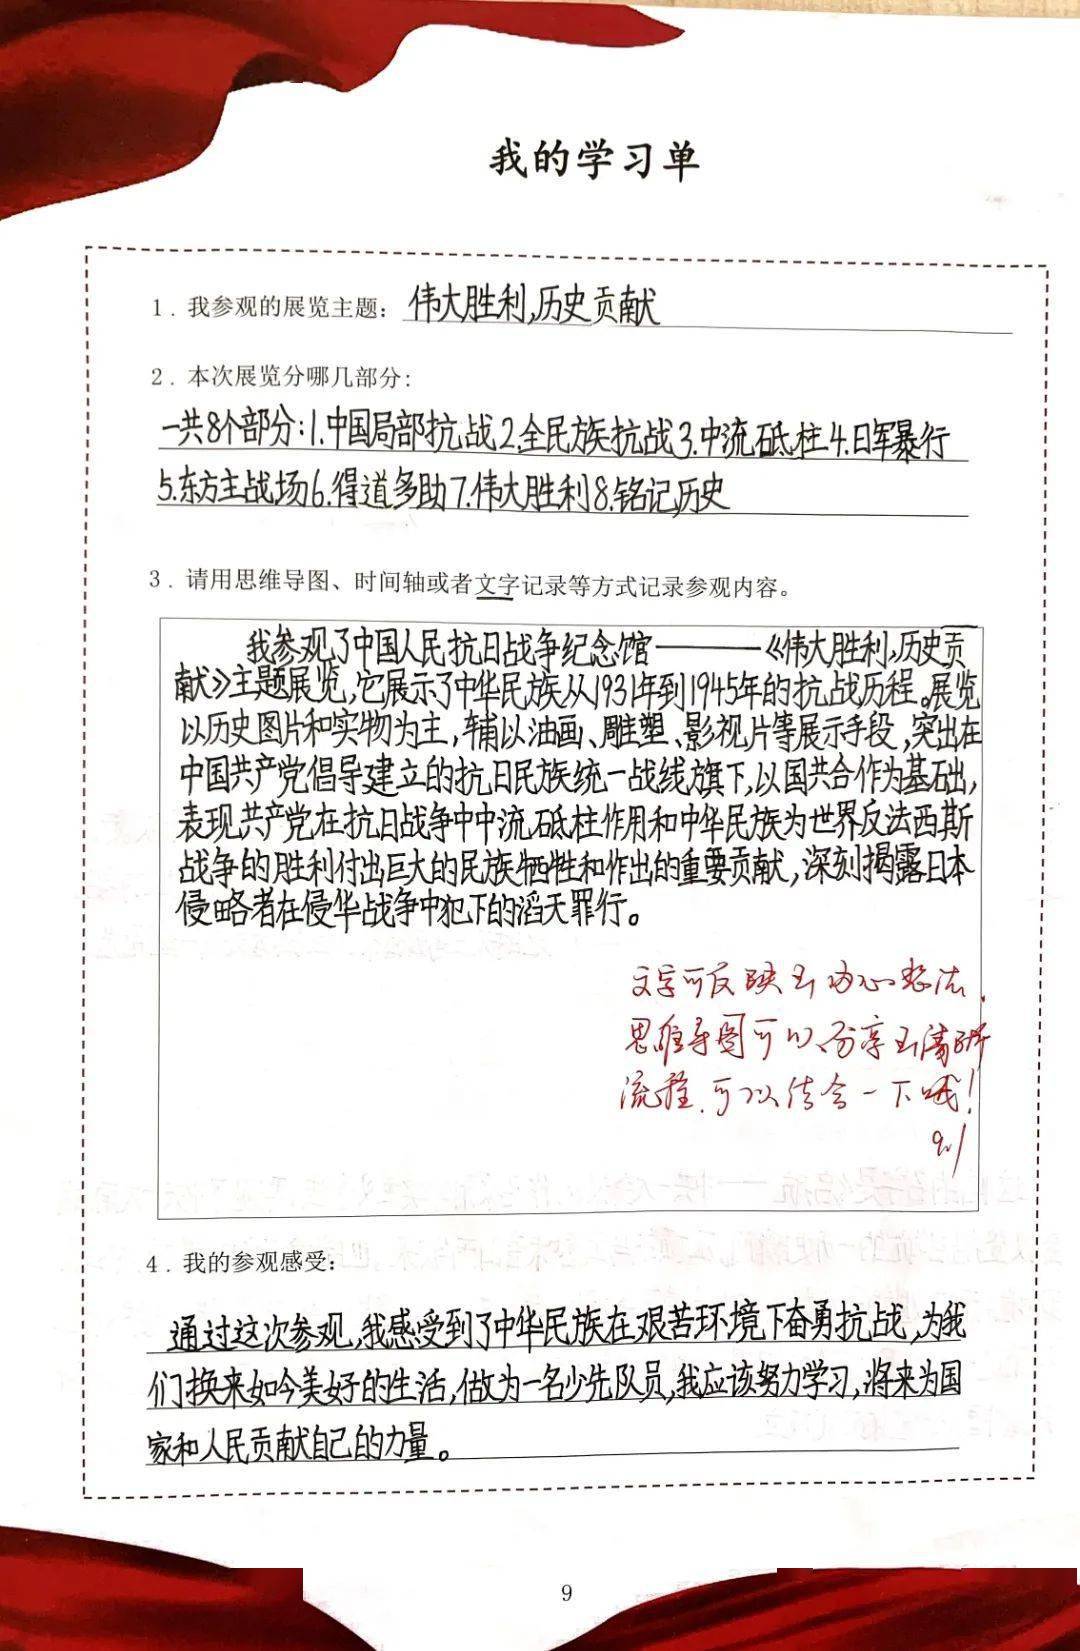 我的学习单
1. 我参观的展览主题：伟大胜利,历史贡献
2. 本次展览分哪几部分：
一共8个部分:1.中国局部抗战2.全民族抗战3.中流砥柱4.日军暴行
5.东方主战场6.得道多助7.伟大胜利8.铭记历史
3. 请用思维导图、时间轴或者文字记录等方式记录参观内容。
我参观了中国人民抗日战争纪念馆———《伟大胜利,历史贡
献》主题展览,它展示了中华民族从1931年到1945年的抗战历程。展览
以历史图片和实物为主,辅以油画、雕塑、影视片等展示手段,突出在
中国共产党倡导建立的抗日民族统一战线旗下,以国共合作为基础,
表现共产党在抗日战争中中流砥柱作用和中华民族为世界反法西斯
战争的胜利付出巨大的民族牺牲和作出的重要贡献,深刻揭露日本
侵略者在侵华战争中犯下的滔天罪行。
文字可反映出内心想法.
思维导图可以分享出清晰
流程.可以结合一下哦!
4. 我的参观感受：
通过这次参观,我感受到了中华民族在艰苦环境下奋勇抗战,为我
们换来如今美好的生活,做为一名少先队员,我应该努力学习,将来为国
家和人民贡献自己的力量。
9